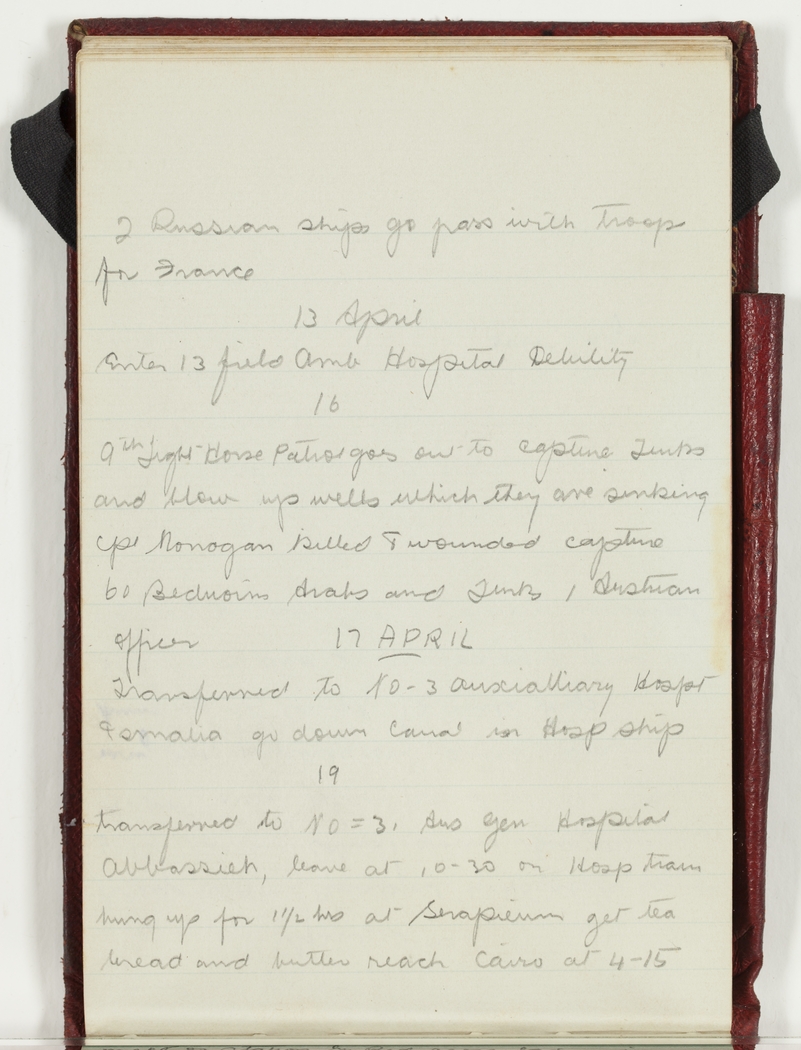 2 Russian ships go pass with Troop
for France
13 April
Enter 13 field Amb Hospital Debility
16
9th Light Horse Patrol goes out to capture Turks
and blow up wells which they are sinking
cpl Monogan killed & wounded capture
60 Bedwoins Arabs and Turks 1 Austrian
officer
17 APRIL
Transferred to NO-3 auxialliary Hospt
Ismalia go down Canal in Hosp ship
19
transferred to NO=3. Aus Gen Hospital
Abbassieh, leave at 10-30 on Hosp train
hung up for 1 1/2 hrs at Serapieum get tea
bread and butter reach Cairo at 4-15